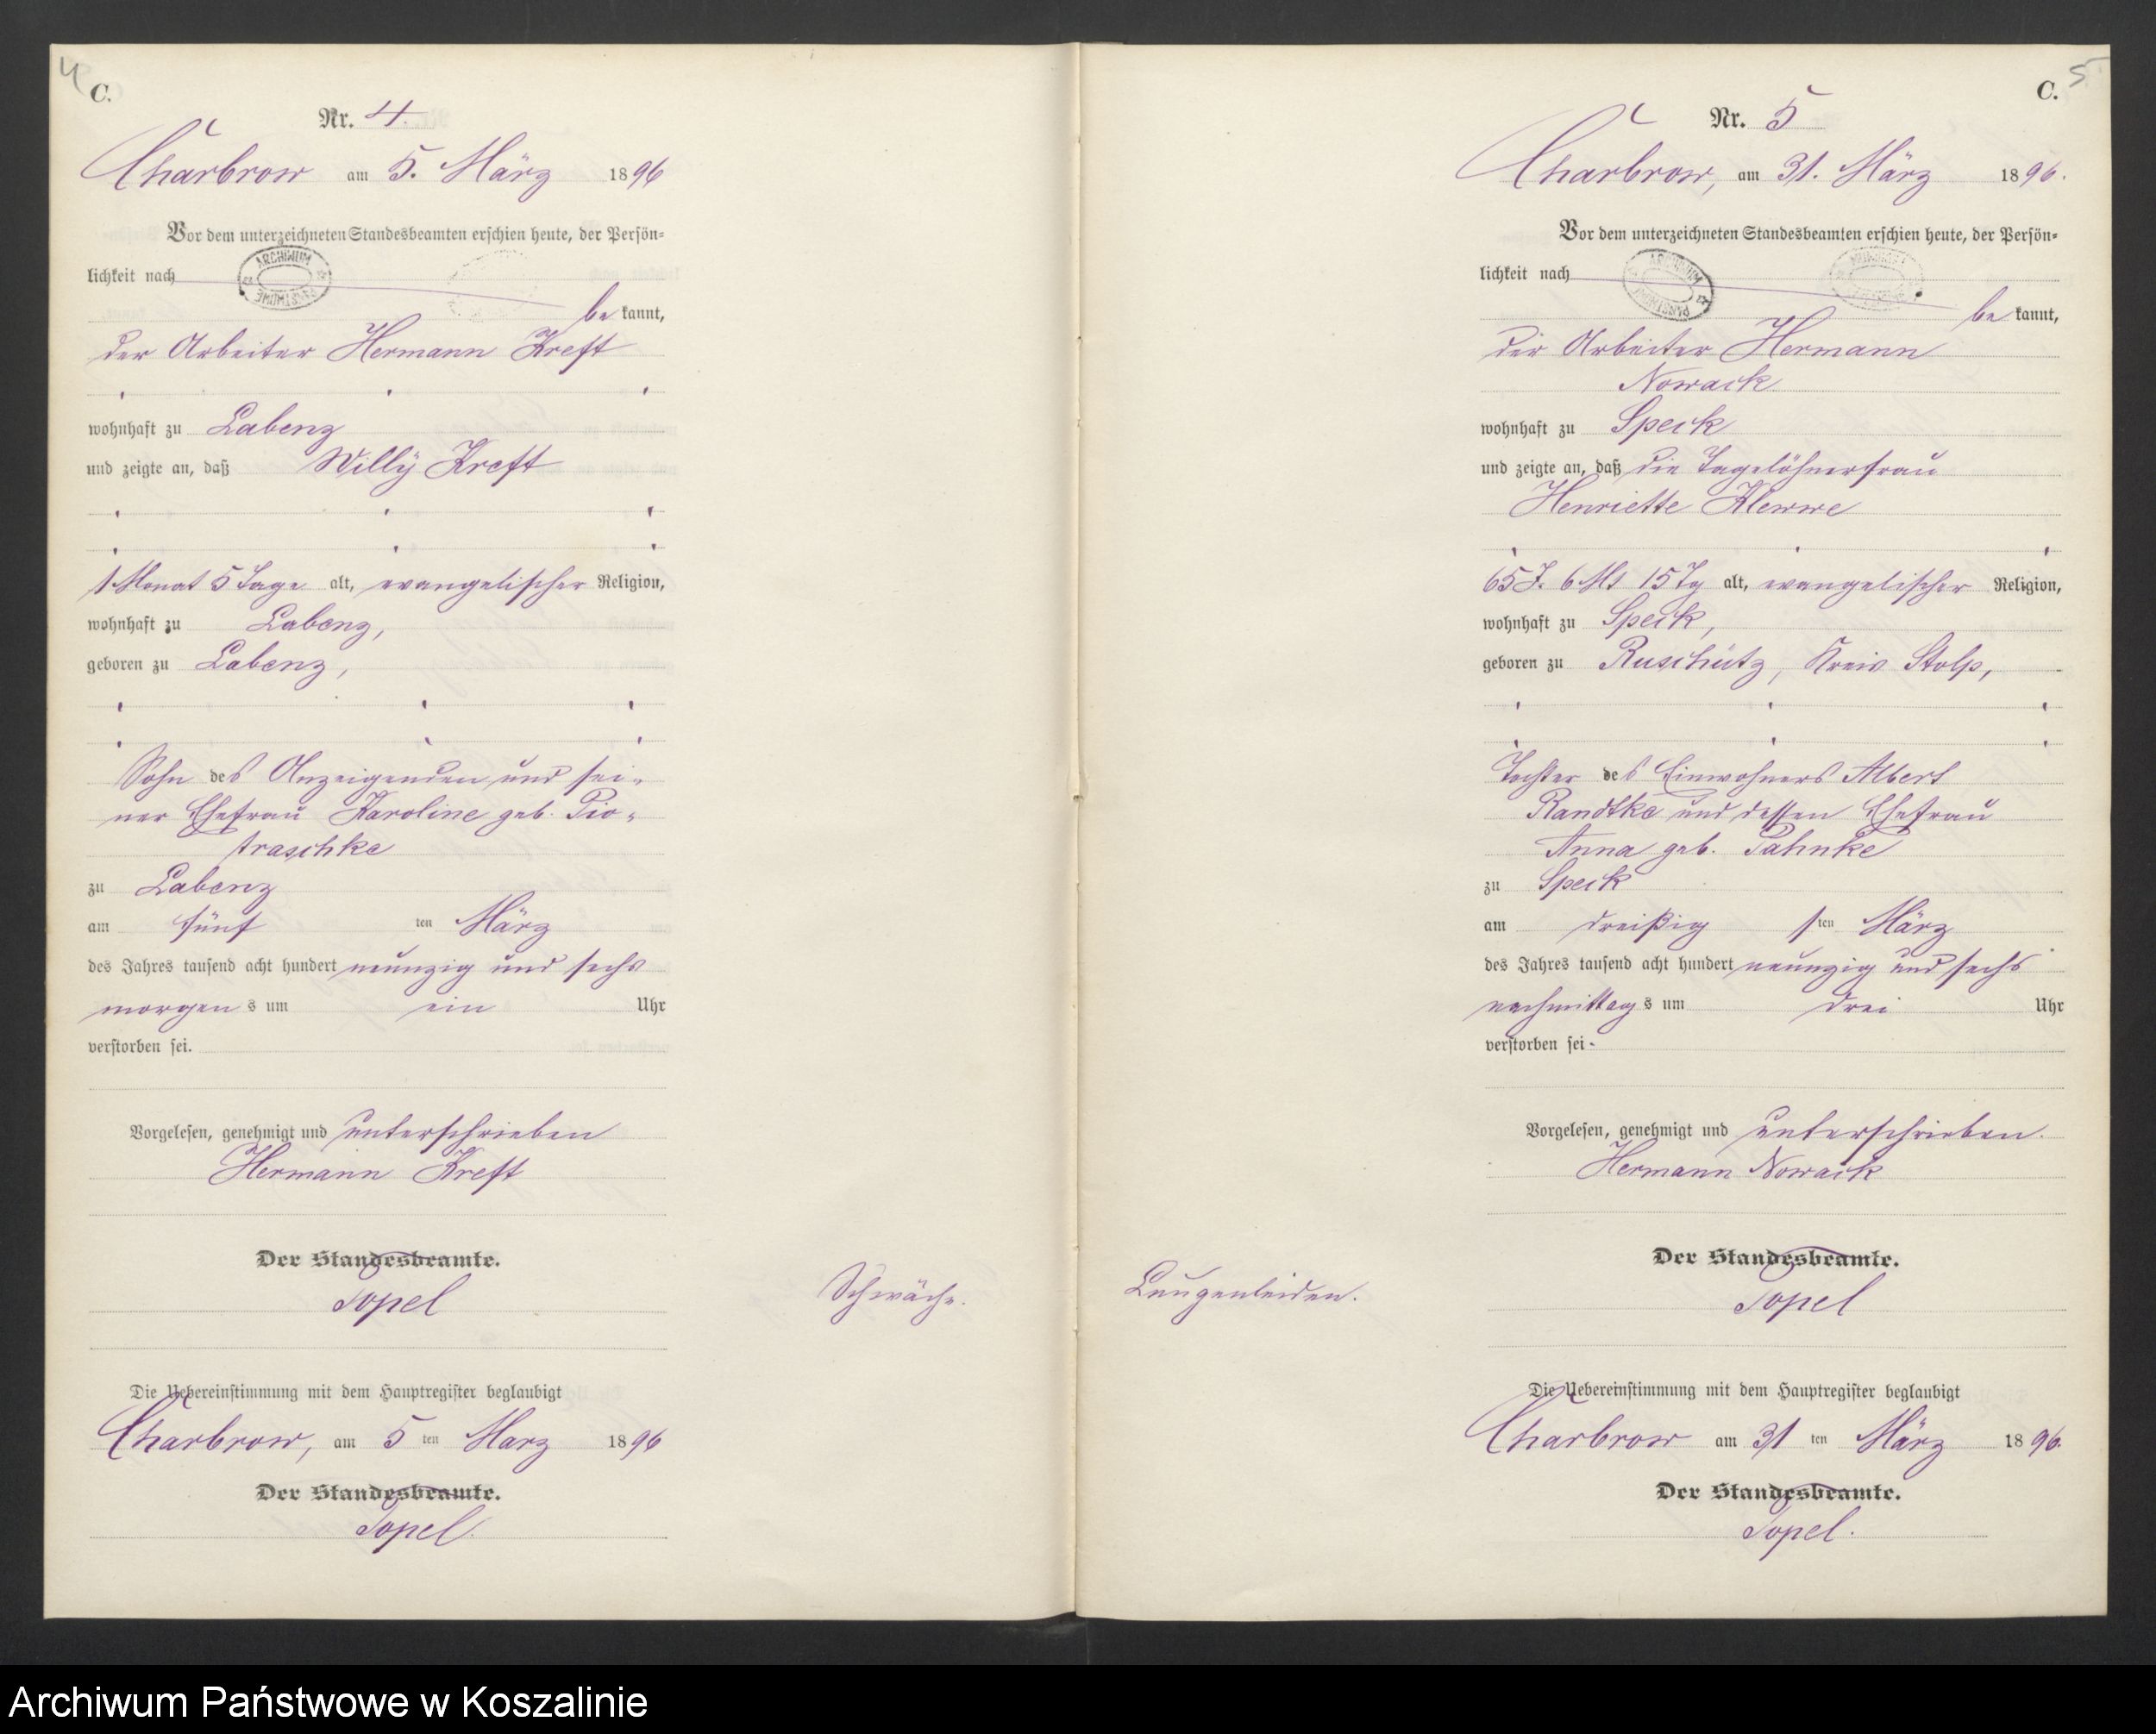 4
C.
Nr. 4.
Charbrow am 5. März 1896
Vor dem unterzeichneten Standesbeamten erschien heute, der Persön=
lichkeit nach
ARCHIWUM PAŃSTWOWE
be kannt,
der Arbeiter Hermann Kreft
wohnhaft zu Labenz
und zeigte an, daß Willy Kreft
1 Monat 5 Tage alt, evangelischer Religion,
wohnhaft zu Labenz,
geboren zu Labenz,
Sohn des Anzeigenden und sei=
ner Ehefrau Karoline geb. Pio=
traschke
zu Labenz
am fünf ten März
des Jahres tausend acht hundert neunzig und sechs
morgen s um ein Uhr
verstorben sei.
Vorgelesen, genehmigt und unterschrieben
Hermann Kreft
Der Standesbeamte.
Topel
Schwäche.
Die Uebereinstimmung mit dem Hauptregister beglaubigt
Charbrow, am 5 ten Marz 1896
Der Standesbeamte.
Topel.
5
C.
Nr. 5
Charbrow, am 31. März 1896.
Vor dem unterzeichneten Standesbeamten erschien heute, der Persön=
lichkeit nach
ARCHIWUM PAŃSTWOWE
be kannt,
der Arbeiter Hermann
Nowack
wohnhaft zu Speck
und zeigte an, daß die Tagelöhnerfrau
Henriette Klewwe
65 J. 6 Mt 15 Tg alt, evangelischer Religion,
wohnhaft zu Speck,
geboren zu Ruschütz, Kreis Stolp,
Tochter des Einwohners Albert
Randtke und dessen Ehefrau
Anna geb. Pahnke
zu Speck
am dreißig sten März
des Jahres tausend acht hundert neunzig und sechs
nachmittag s um drei Uhr
verstorben sei.
Vorgelesen, genehmigt und unterschrieben.
Hermann Nowack
Der Standesbeamte.
Topel
Lungenleiden.
Die Uebereinstimmung mit dem Hauptregister beglaubigt
Charbrow am 31 ten März 1896.
Der Standesbeamte.
Topel.
Archiwum Państwowe w Koszalinie